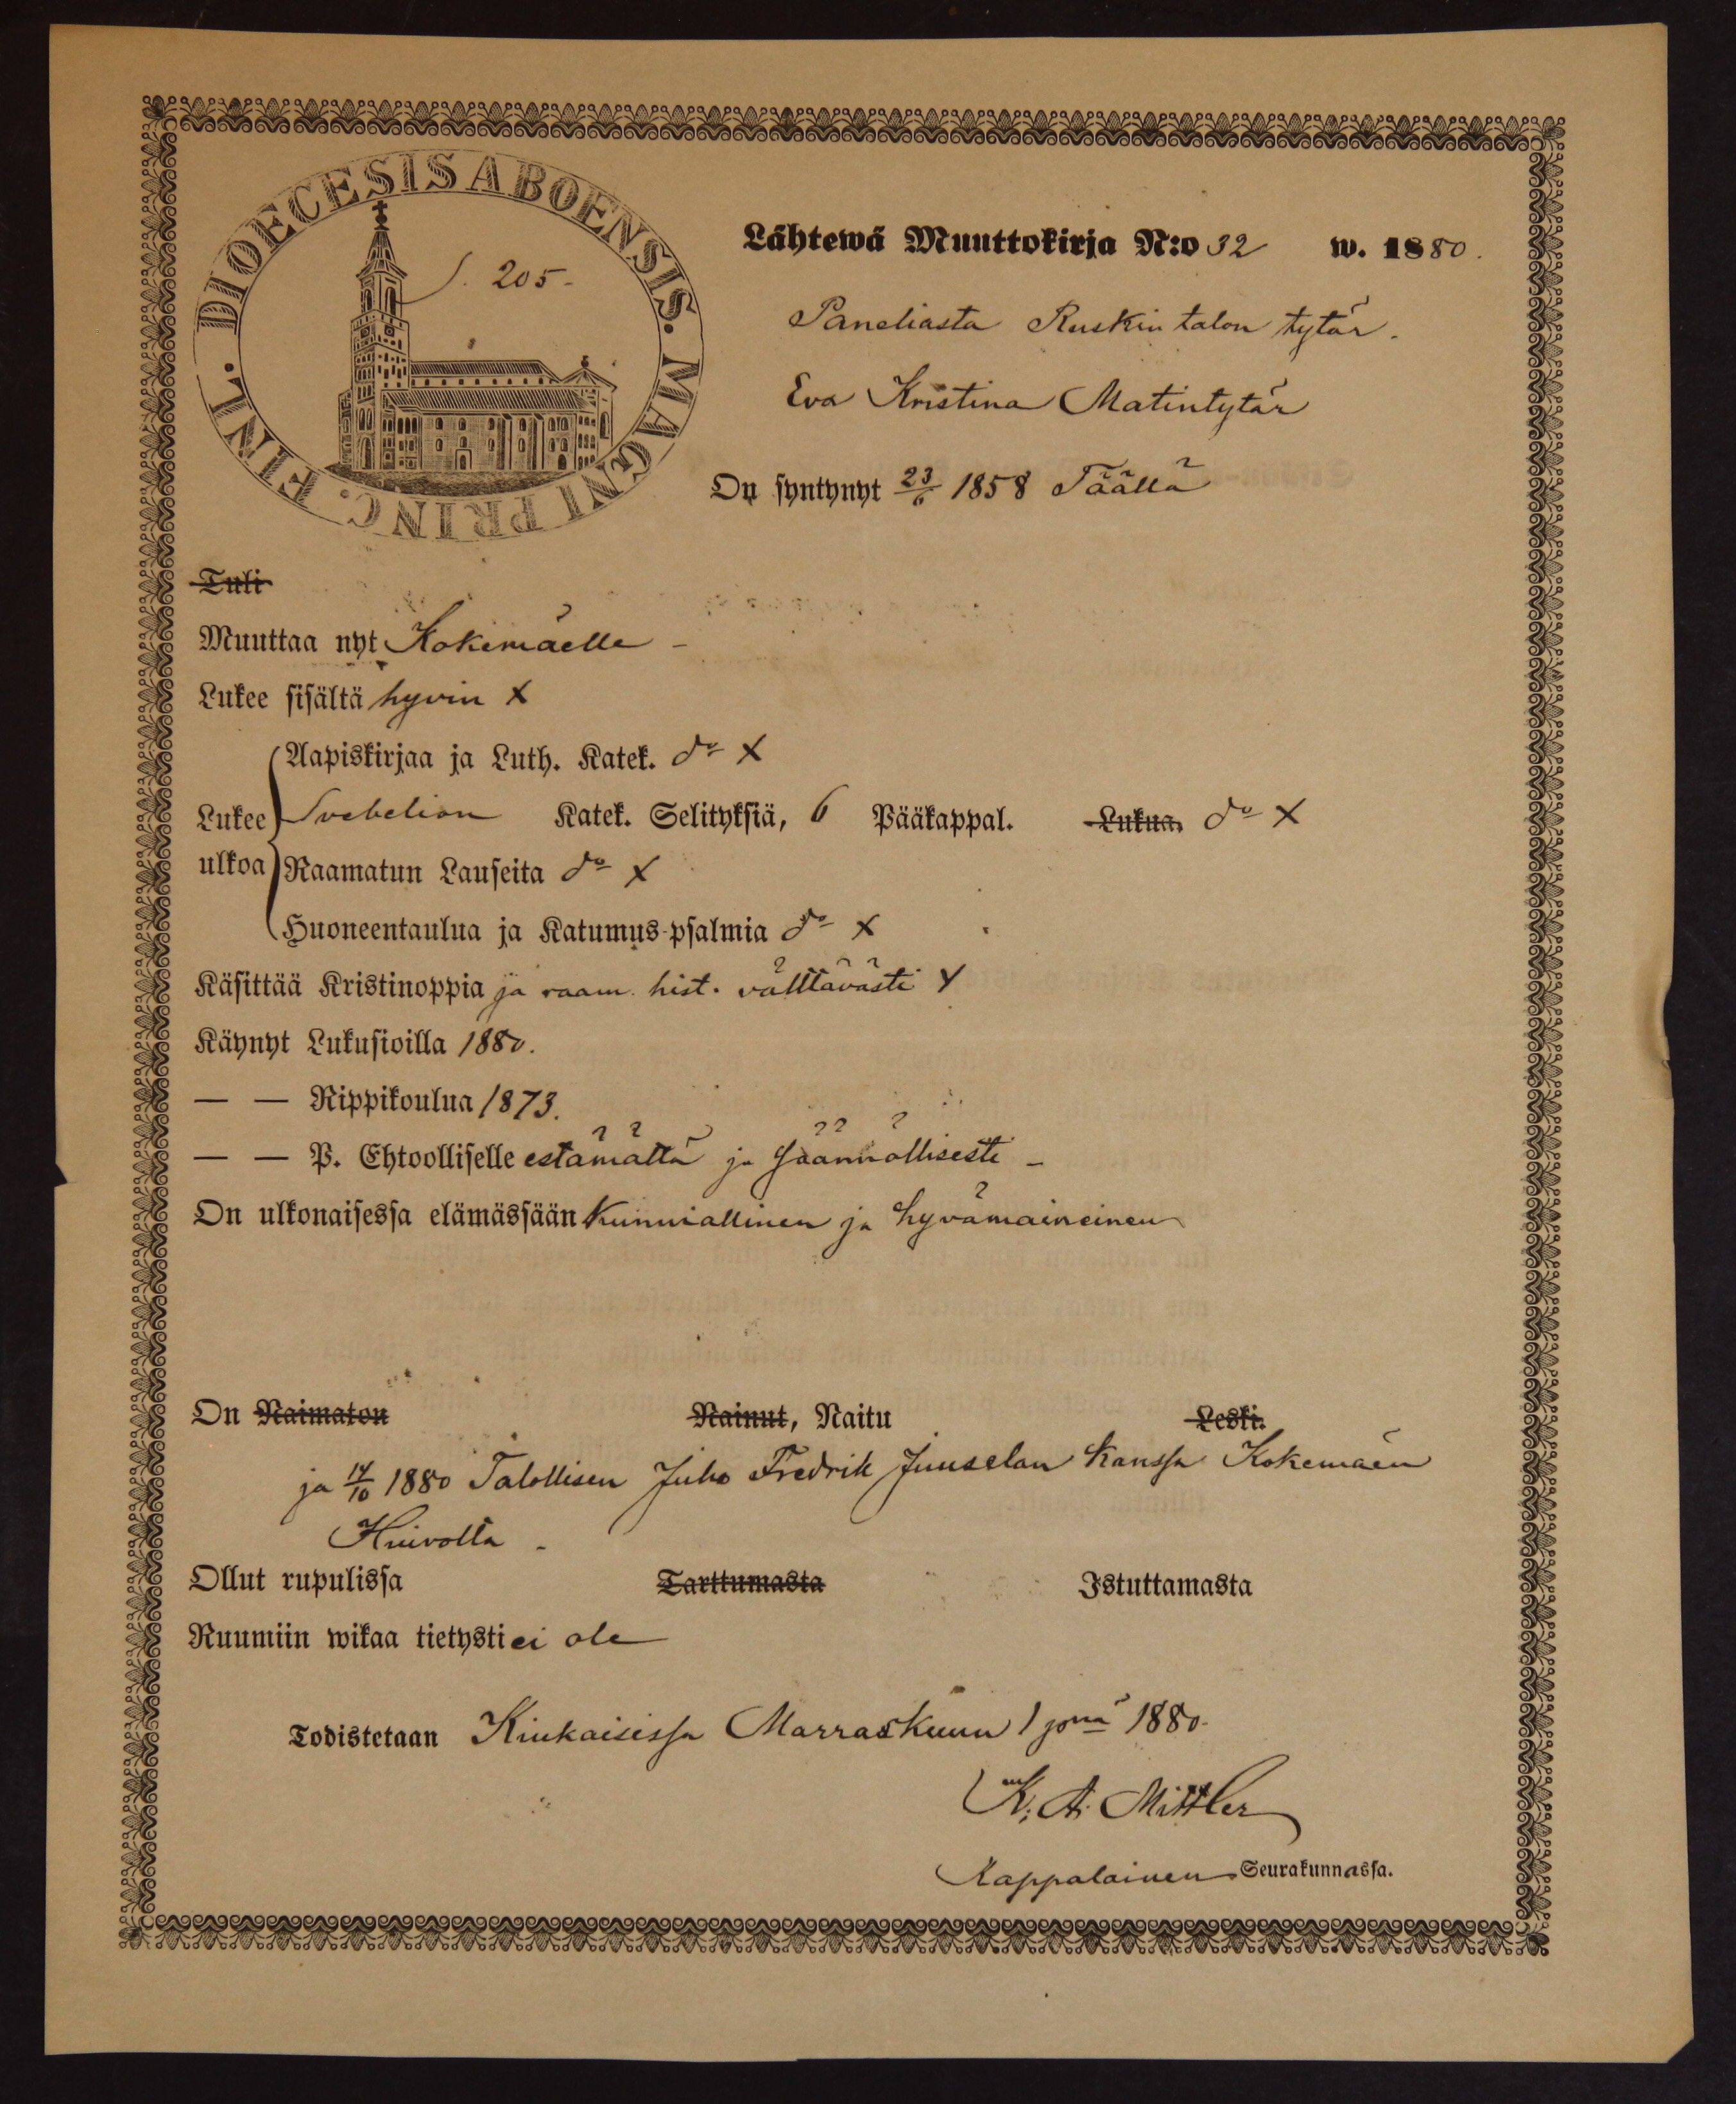 DIOECESIS ABOENSIS. MAGNI PRINC. FINL.
S. 205.
Lähtewä Muuttokirja N:o 32 w. 1880.
Paneliasta Ruskin talon tytär.
Eva Kristina Matintytär
On syntynyt 23/6 1858 Täällä
Tuli
Muuttaa nyt Kokemäelle -
Lukee sisältä hyvin X
Lukee ulkoa
Aapiskirjaa ja Luth. Katek. do X
Svebelion Katek. Selityksiä, 6 Pääkappal. Lukua, do X
Raamatun Lauseita do X
Huoneentaulua ja Katumus-psalmia do X
Käsittää Kristinoppia ja raam. hist. välttävästi X
Käynyt Lukusioilla 1880.
— — Rippikoulua 1873.
— — P. Ehtoolliselle estämättä ja säännöllisesti -
On ulkonaisessa elämässään kunniallinen ja hyvämaineinen
On Naimaton Nainut, Naitu Leski.
ja 14/10 1880 Talollisen Juho Fredrik Juuselan kanssa Kokemäen
Huivolta -
Ollut rupulissa Tarttumasta Istuttamasta
Ruumiin wikaa tietysti ei ole
Todistetaan Kiukaisissa Marraskuun 1 pnä 1880.
K. A. Mittler
Kappalainen Seurakunnassa.